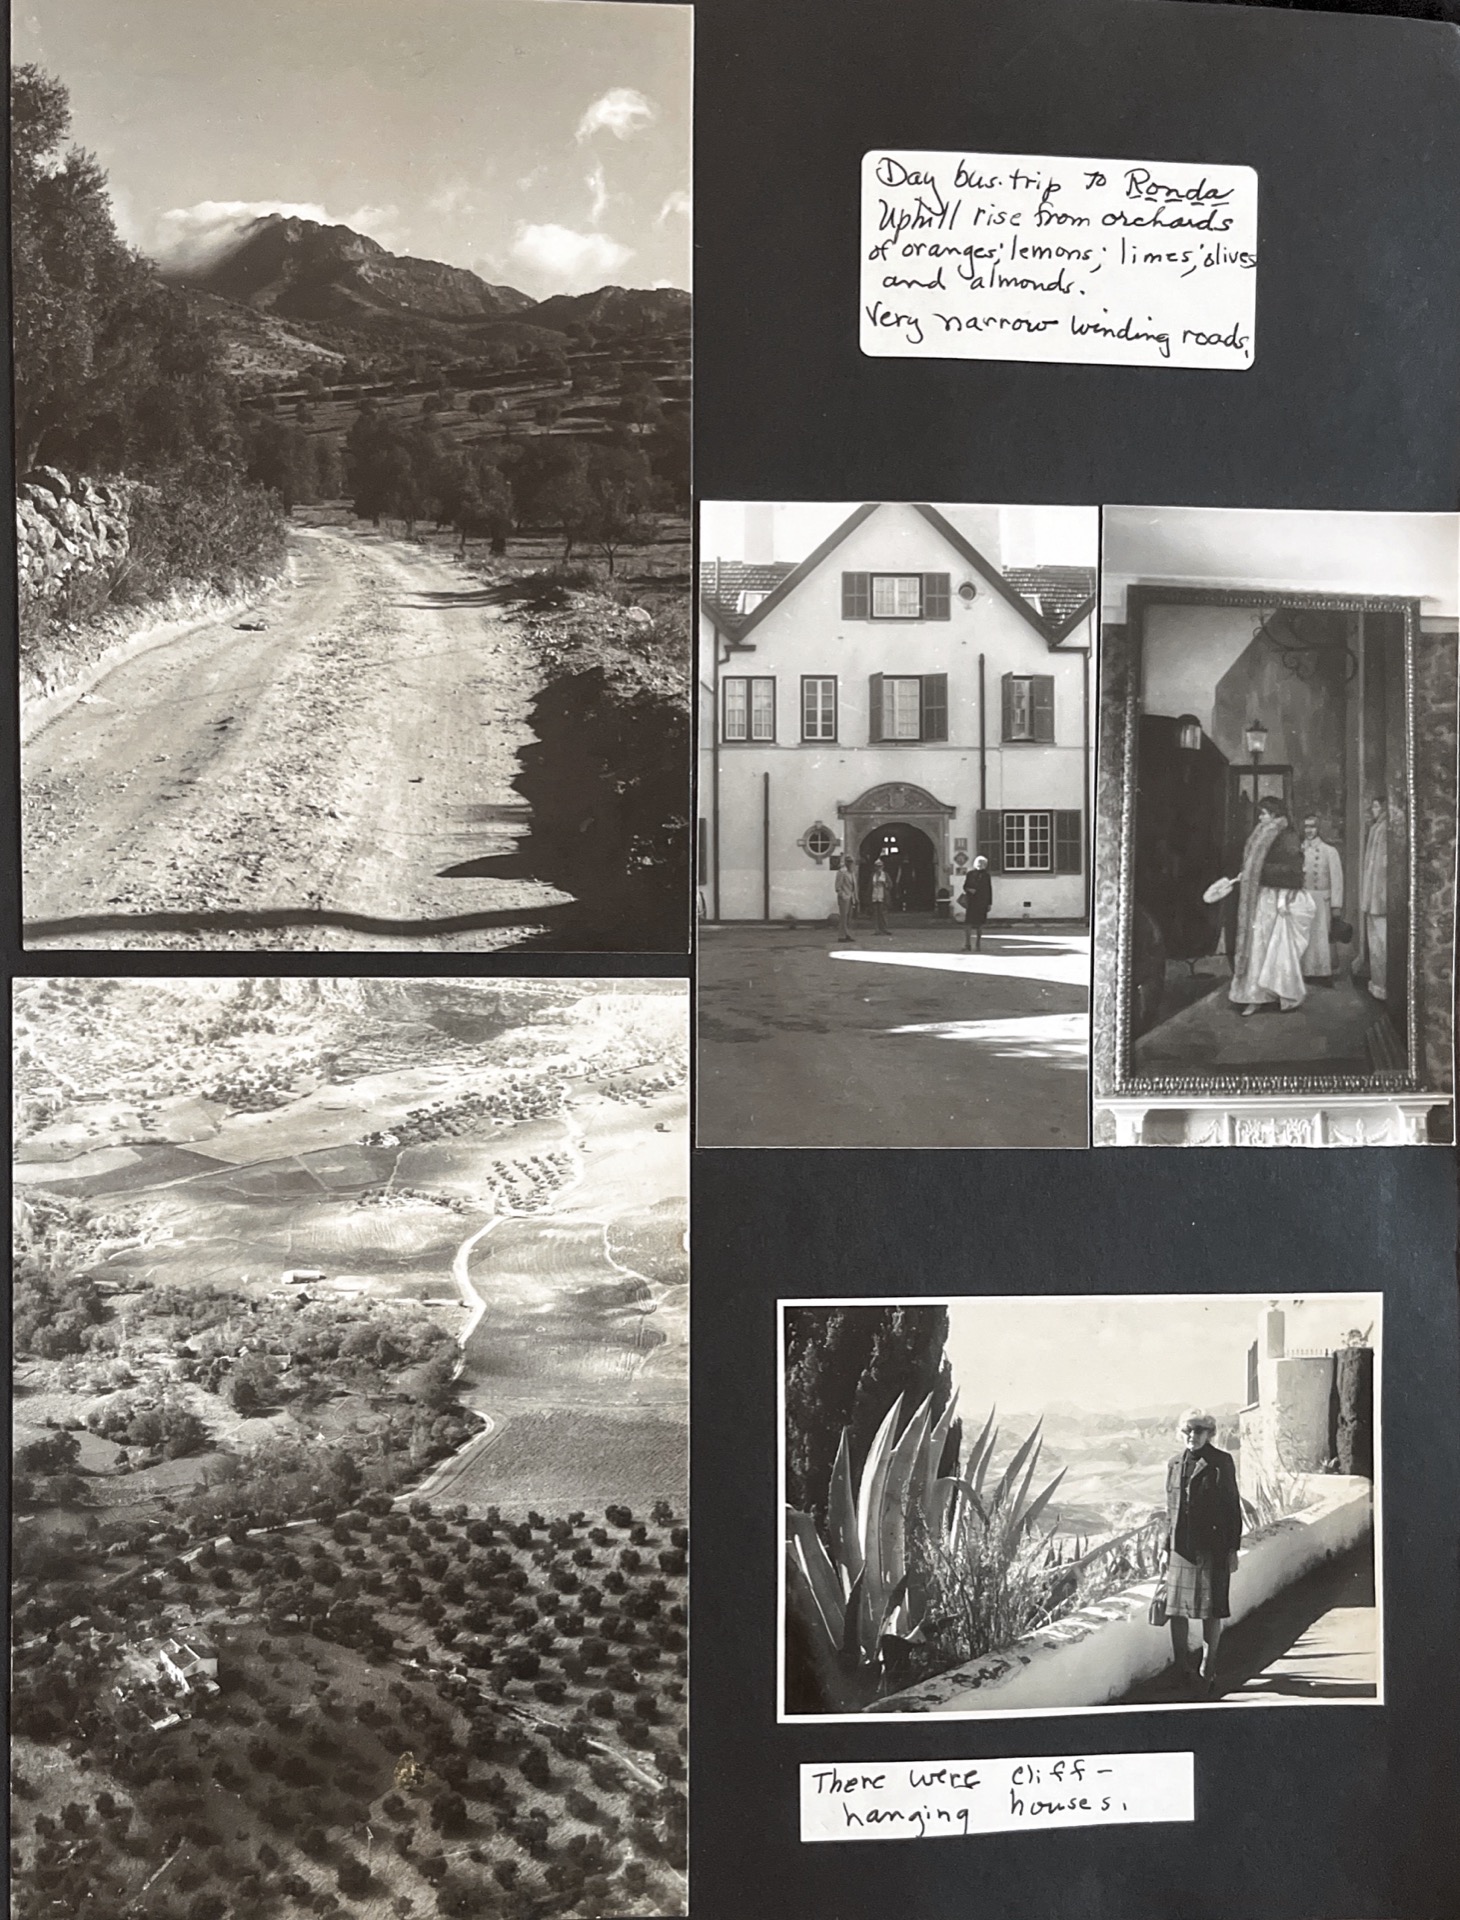 Day bus trip to Ronda
Uphill rise from orchards
of oranges; lemons; limes; olives
and almonds.
Very narrow winding roads.
There were cliff-
hanging houses.